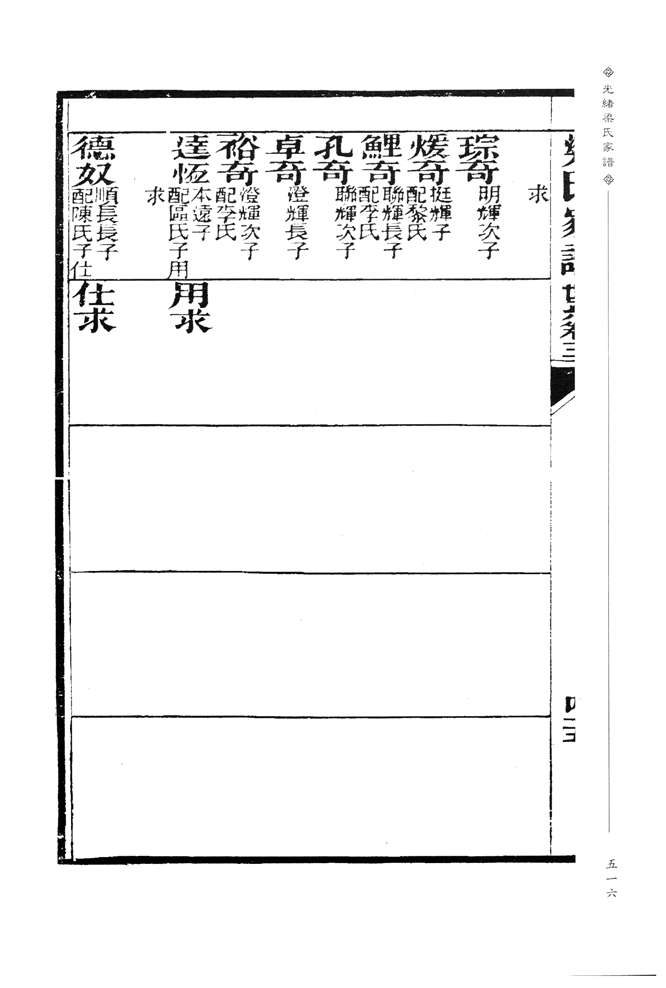 光緒梁氏家譜
五一六
梁氏家譜世系卷三
四十五
求
琮奇
明輝次子
煖奇
挺輝子
配黎氏
鯉奇
聯輝長子
配李氏
孔奇
聯輝次子
卓奇
澄輝長子
裕奇
澄輝次子
配李氏
求
達恆
本遠子
配區氏子用
用求
德奴
順長長子
配陳氏子仕
仕求